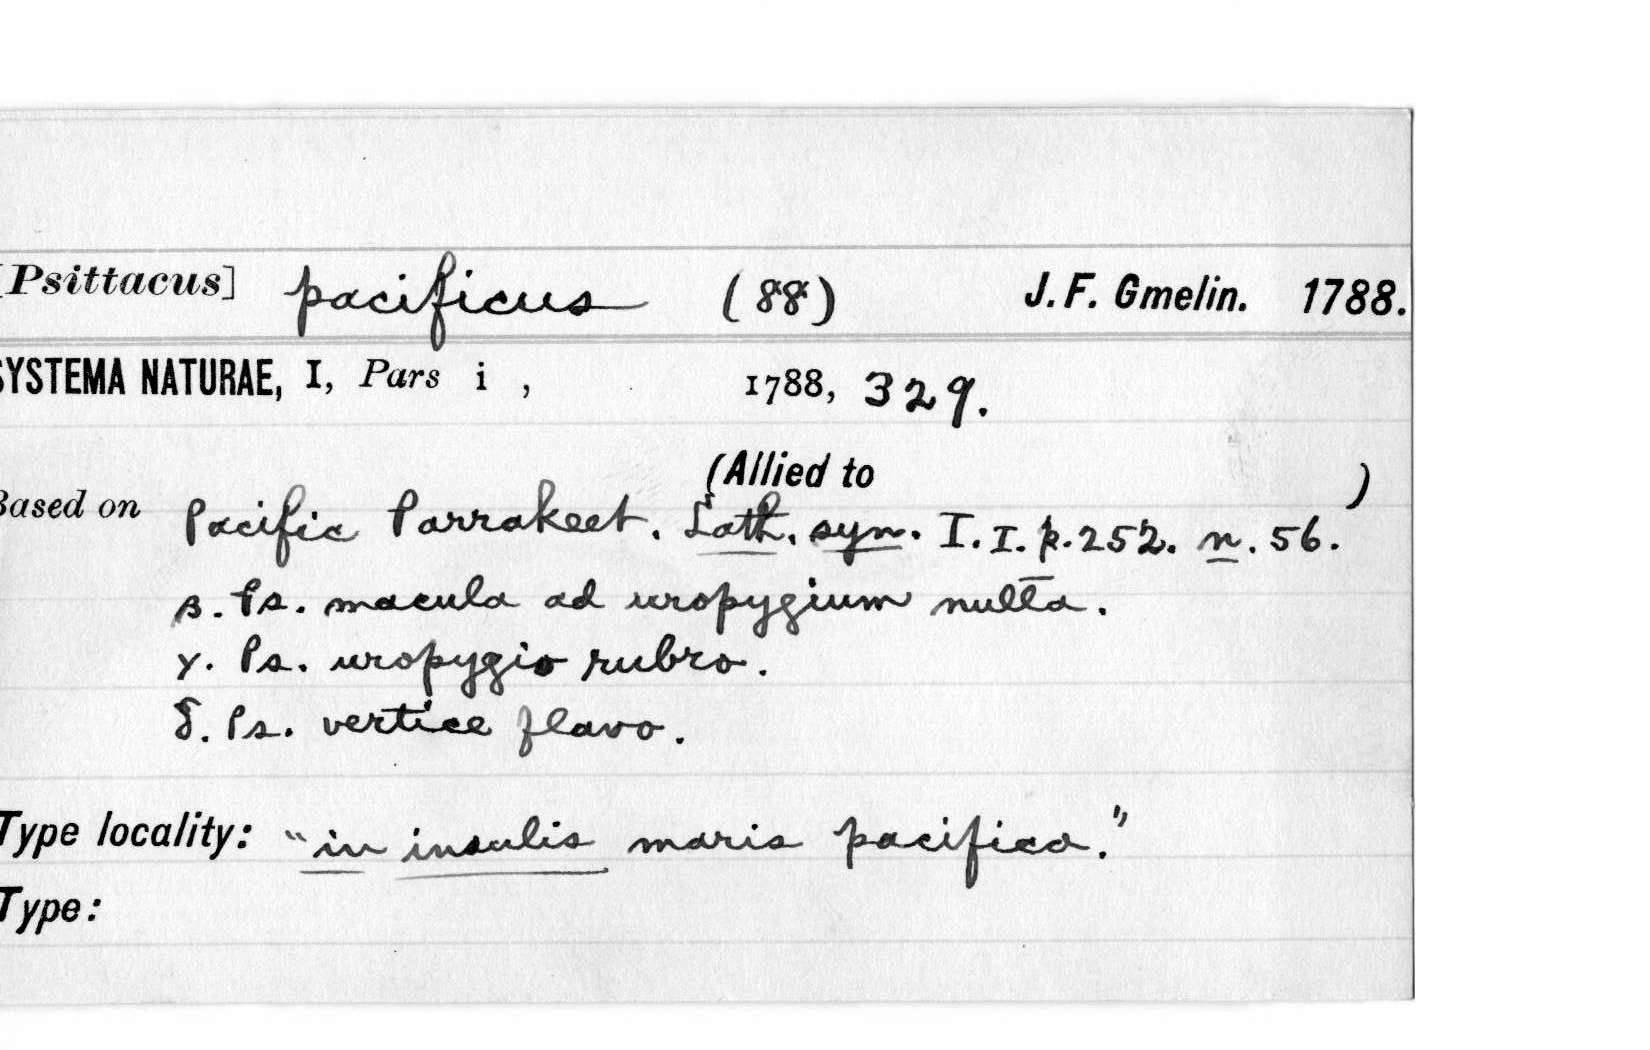 [Psittacus] pacificus (88) J. F. Gmelin. 1788.
SYSTEMA NATURAE, I, Pars i , 1788, 329.
(Allied to )
Based on Pacific Parrakeet. Lath. syn. I. I. p. 252. n. 56.
β. Ps. macula ad uropygium nulla.
γ. Ps. uropygio rubro.
δ. Ps. vertice flavo.
Type locality: "in insulis maris pacifica."
Type: